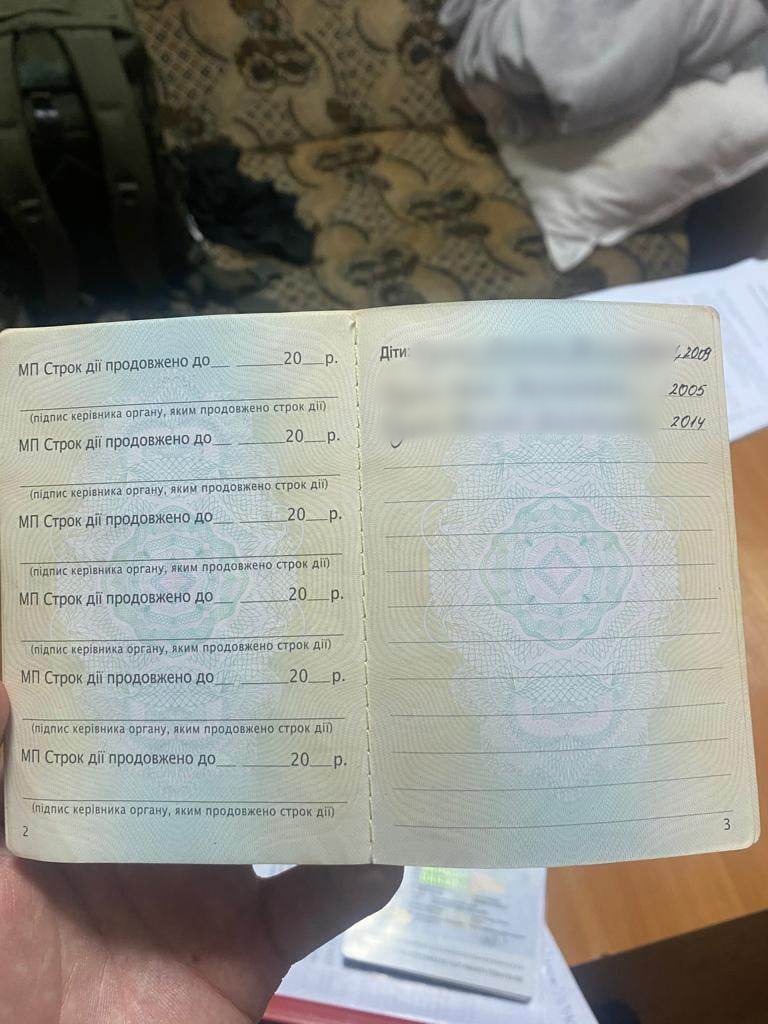 МП Строк дії продовжено до__ _____20__р.
(підпис керівника органу, яким продовжено строк дії)
МП Строк дії продовжено до__ _____20__р.
(підпис керівника органу, яким продовжено строк дії)
МП Строк дії продовжено до__ _____20__р.
(підпис керівника органу, яким продовжено строк дії)
МП Строк дії продовжено до__ _____20__р.
(підпис керівника органу, яким продовжено строк дії)
МП Строк дії продовжено до__ _____20__р.
(підпис керівника органу, яким продовжено строк дії)
МП Строк дії продовжено до__ _____20__р.
(підпис керівника органу, яким продовжено строк дії)
2
Діти: 2009
2005
2014
3